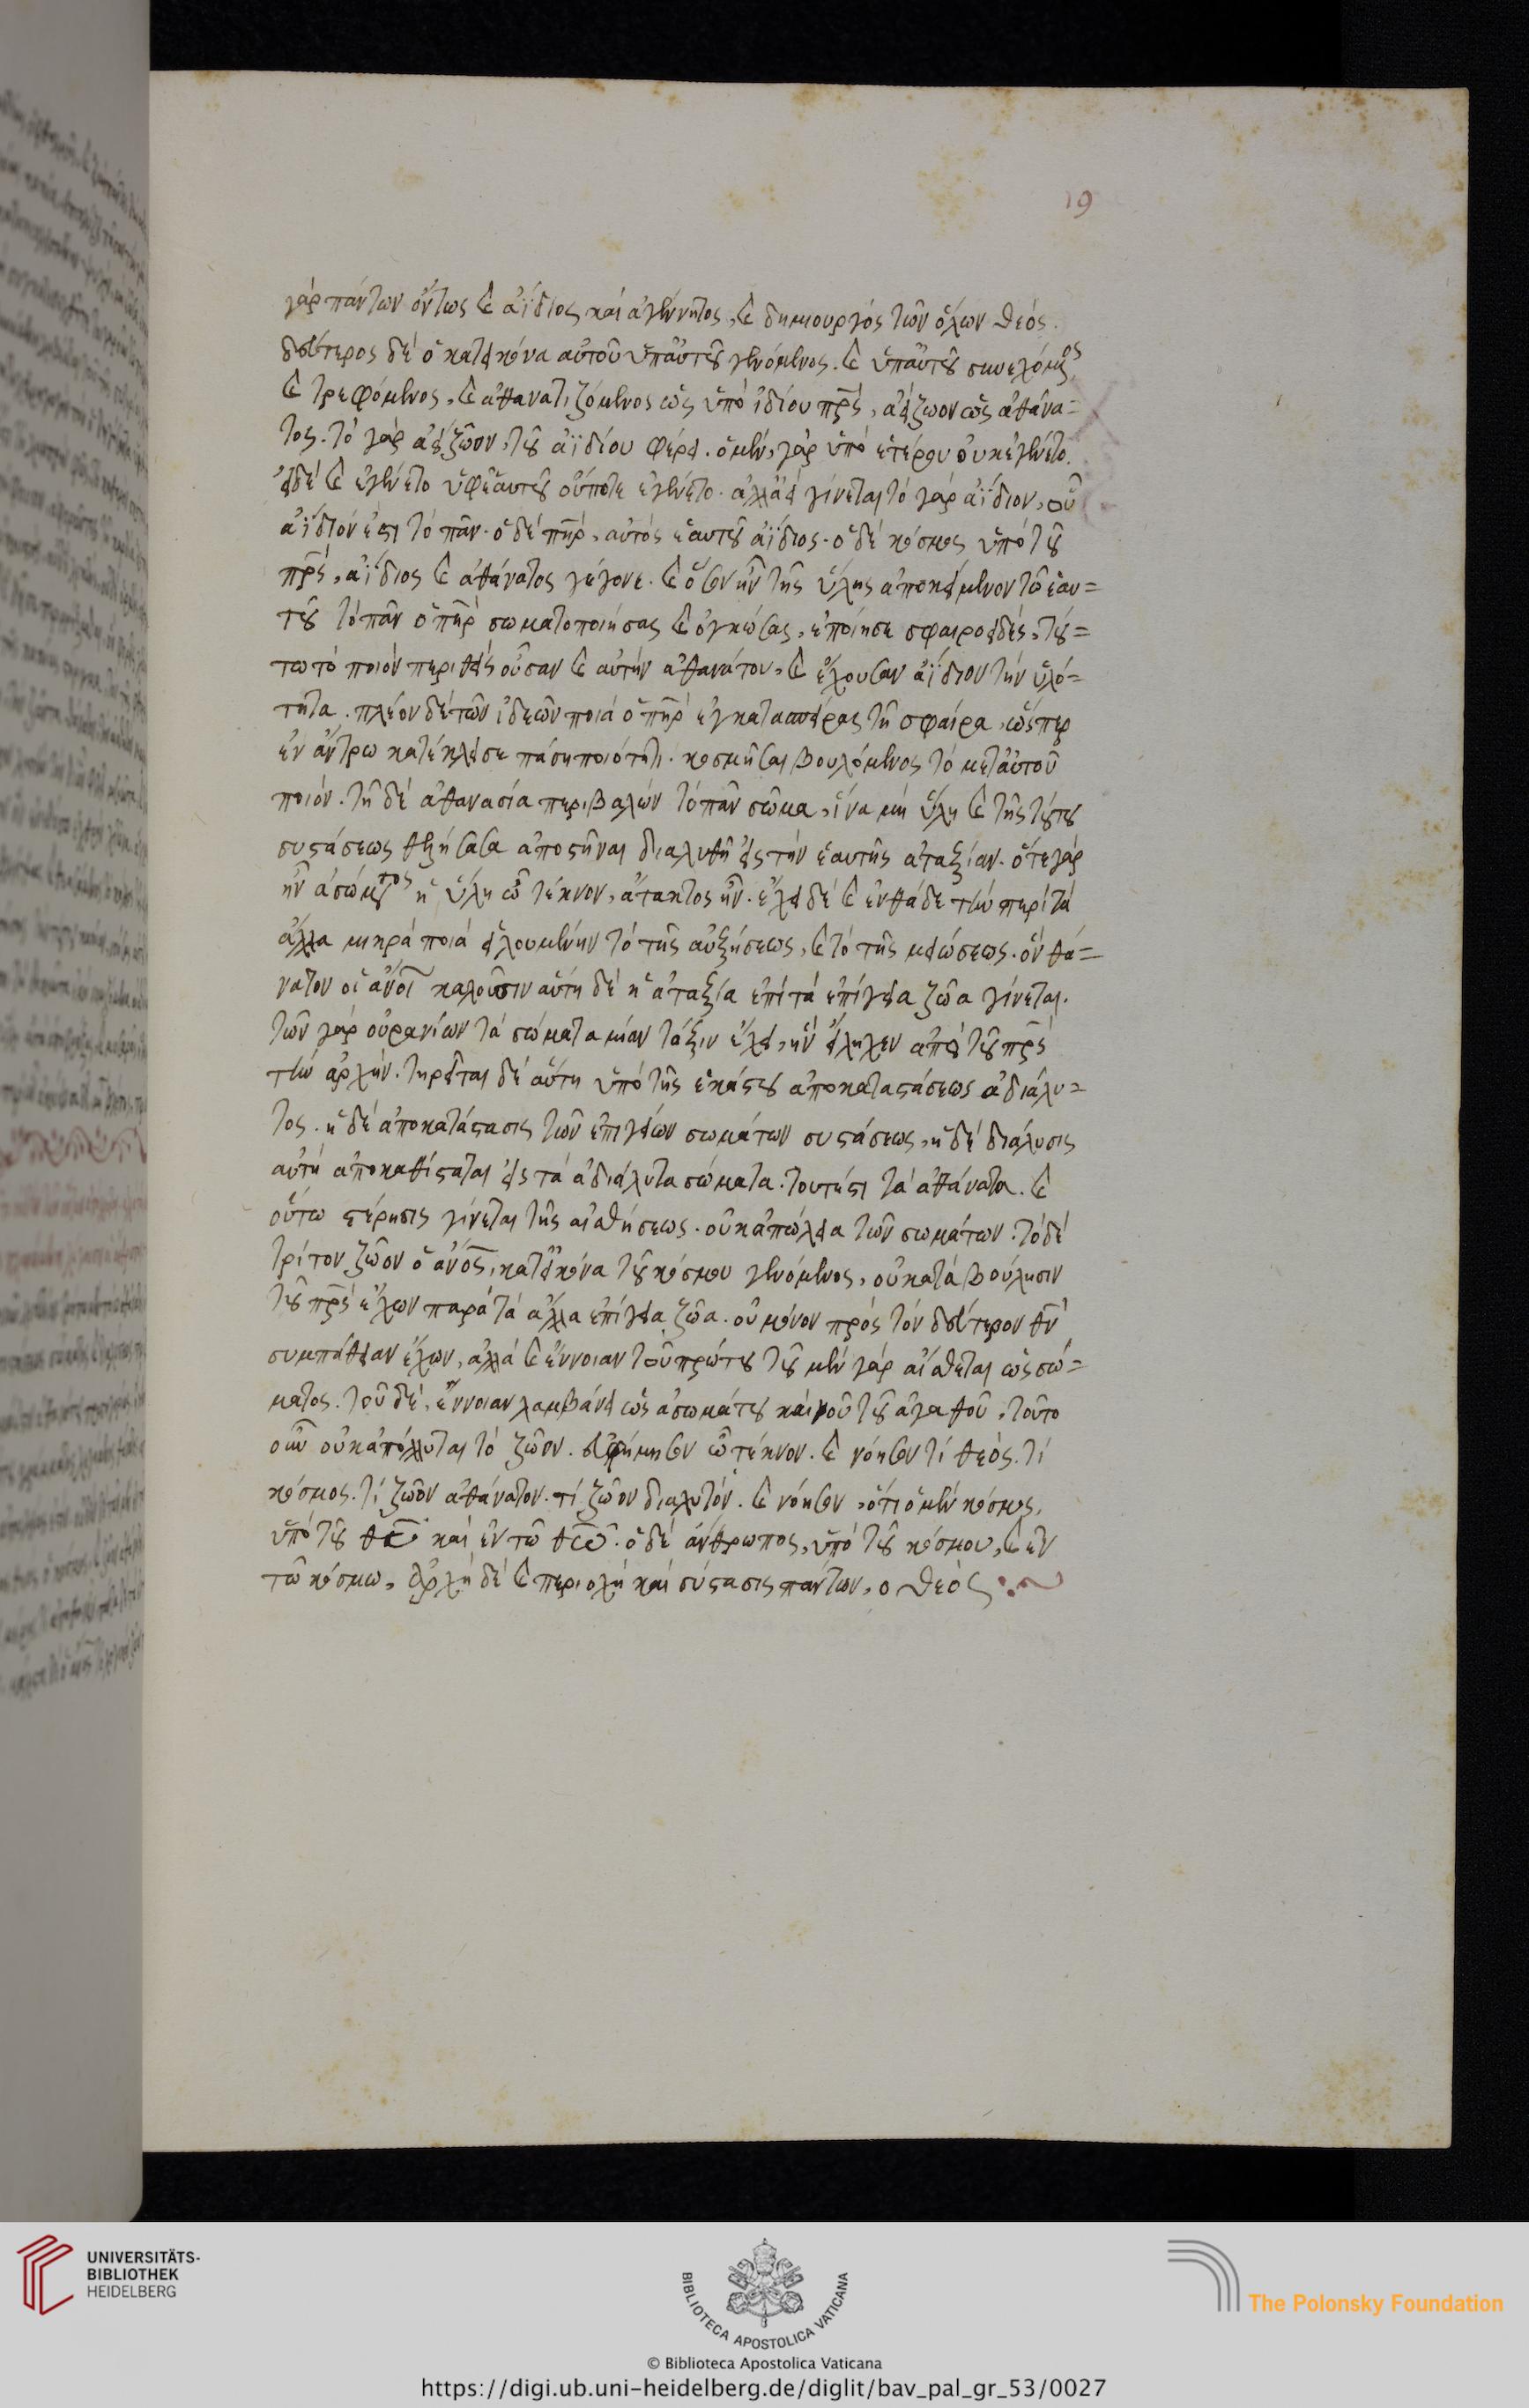 19
γὰρ πάντων ὄντως καὶ ἀΐδιος καὶ ἀγέννητος, καὶ δημιουργὸς τῶν ὅλων θεός.
δεύτερος δὲ ὁ κατ εἰκόνα αὐτοῦ ὑπ αὐτοῦ γενόμενος. καὶ ὑπ αὐτοῦ συνεχόμενος
καὶ τρεφόμενος, καὶ ἀθανατιζόμενος ὡς ὑπὸ ἰδίου πρς, ἀείζωον ὡς ἀθάνα=
τος. τὸ γὰρ ἀείζωον, τοῦ ἀϊδίου φέρει. ὁ μὲν γὰρ ὑπὸ ἑτέρου οὐκ ἐγένετο.
εἰ δὲ καὶ ἐγένετο ὑφ ἑαυτοῦ οὔποτε ἐγένετο. ἀλλ ἀεὶ γίνεται τὸ γὰρ ἀΐδιον, οὗ
ἀΐδιόν ἐστι τὸ πᾶν. ὁ δὲ πηρ, αὐτὸς ἑαυτοῦ ἀΐδιος. ὁ δὲ κόσμος ὑπὸ τοῦ
πρς, ἀΐδιος καὶ ἀθάνατος γέγονε. καὶ ὅσον ἦν τῆς ὕλης ἀποκείμενον τῶ ἑαυ=
τοῦ τὸ πᾶν ὁ πηρ σωματοποιήσας καὶ ὀγκώσας, ἐποίησε σφαιροειδές, τού=
τω τὸ ποιὸν περιθεὶς οὖσαν καὶ αὐτὴν ἀθανάτον, καὶ ἔχουσαν ἀΐδιον τὴν ὑλό=
τητα. πλέον δὲ τῶν ἰδεῶν ποιὰ ὁ πηρ ἐγκατασπείρας τῆ σφαίρα, ὥσπερ
ἐν ἄντρω κατέκλεισε πάση ποιότητι. κοσμῆσαι βουλόμενος τὸ μετ αὐτοῦ
ποιόν. τῆ δὲ ἀθανασία περιβαλὼν τὸ πᾶν σῶμα, ἵνα μὴ ὕλη καὶ τῆς τούτου
συστάσεως θελήσασα ἀποστῆναι διαλυθῆ εἰς τὴν ἑαυτῆς ἀταξίαν. ὅτε γὰρ
ἦν ἀσώματος ἡ ὕλη ὦ τέκνον, ἄτακτος ἦν. ἔχει δὲ καὶ ἐνθάδε τὴν περὶ τὰ
ἄλλα μικρὰ ποιὰ εἱλουμένην τὸ τῆς αὐξήσεως, καὶ τὸ τῆς μειώσεως. ὃν θά=
νατον οἱ ἄνοι καλοῦσιν αὕτη δὲ ἡ ἀταξία ἐπὶ τὰ ἐπίγεια ζῶα γίνεται.
τῶν γὰρ οὐρανίων τὰ σώματα μίαν τάξιν ἔχει, ἣν εἴληχεν ἀπὸ τοῦ πρς
τὴν ἀρχήν. τηρεῖται δὲ αὕτη ὑπὸ τῆς ἑκάστου ἀποκαταστάσεως ἀδιάλυ=
τος. ἡ δὲ ἀποκατάστασις τῶν ἐπιγείων σωμάτων συστάσεως, ἡ δὲ διάλυσις
αὐτὴ ἀποκαθίσταται εἰς τὰ ἀδιάλυτα σώματα. τουτέστι τὰ ἀθάνατα. καὶ
οὕτω στέρησις γίνεται τῆς αἰσθήσεως. οὐκ ἀπώλεια τῶν σωμάτων. τὸ δὲ
τρίτον ζῶον ὁ ἄνος, κατ εἰκόνα τοῦ κόσμου γενόμενος, οὐ κατὰ βούλησιν
τοῦ πρς ἔχων παρὰ τὰ ἄλλα ἐπίγεια ζῶα. οὐ μόνον πρὸς τὸν δεύτερον θν
συμπάθειαν ἔχων, ἀλλὰ καὶ ἔννοιαν τοῦ πρώτου τοῦ μὲν γὰρ αἴσθεται ὡς σώ=
ματος. τοῦ δὲ, ἔννοιαν λαμβάνει ὡς ἀσωμάτου καὶ νοῦ τοῦ ἀγαθοῦ, τοῦτο
οὖν οὐκ ἀπόλλυται τὸ ζῶον. εὐφήμησον ὦ τέκνον. καὶ νόησον τί θεὸς. τί
κόσμος. τί ζῶον ἀθάνατον. τί ζῶον διαλυτόν. καὶ νόησον, ὅτι ὁ μὲν κόσμος,
ὑπὸ τοῦ θυ καὶ ἐν τῶ θω. ὁ δὲ ἄνθρωπος, ὑπὸ τοῦ κόσμου, καὶ ἐν
τῶ κόσμω, ἀρχὴ δὲ καὶ περιοχὴ καὶ σύστασις πάντων, ο θεὸς
UNIVERSITÄTS-
BIBLIOTHEK
HEIDELBERG
BIBLIOTECA APOSTOLICA VATICANA
The Polonsky Foundation
© Biblioteca Apostolica Vaticana
https://digi.ub.uni-heidelberg.de/diglit/bav_pal_gr_53/0027